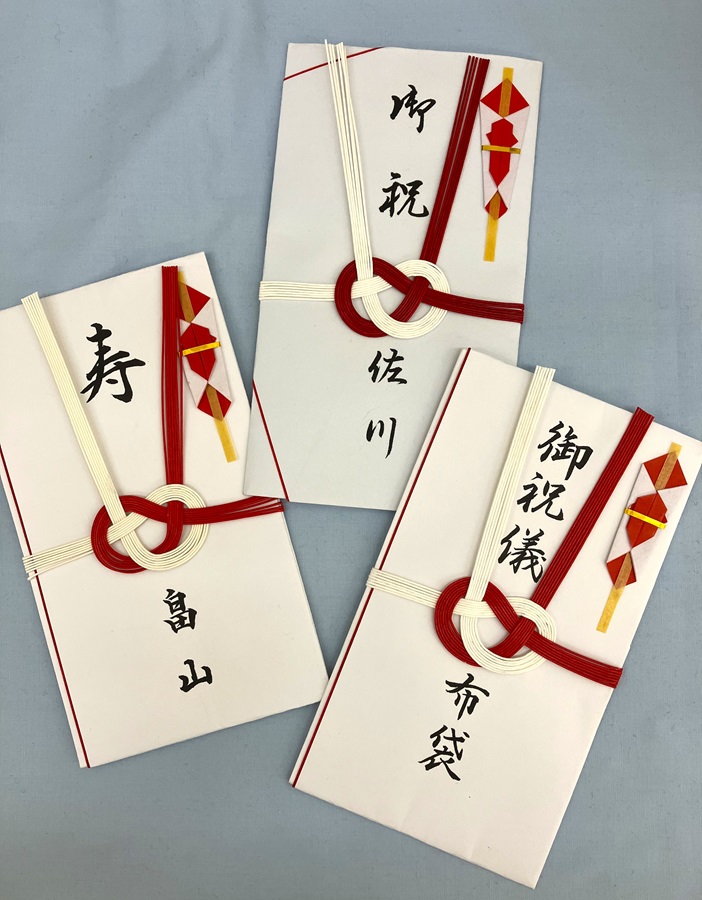 御祝
佐川
寿
畠山
御祝儀
布袋